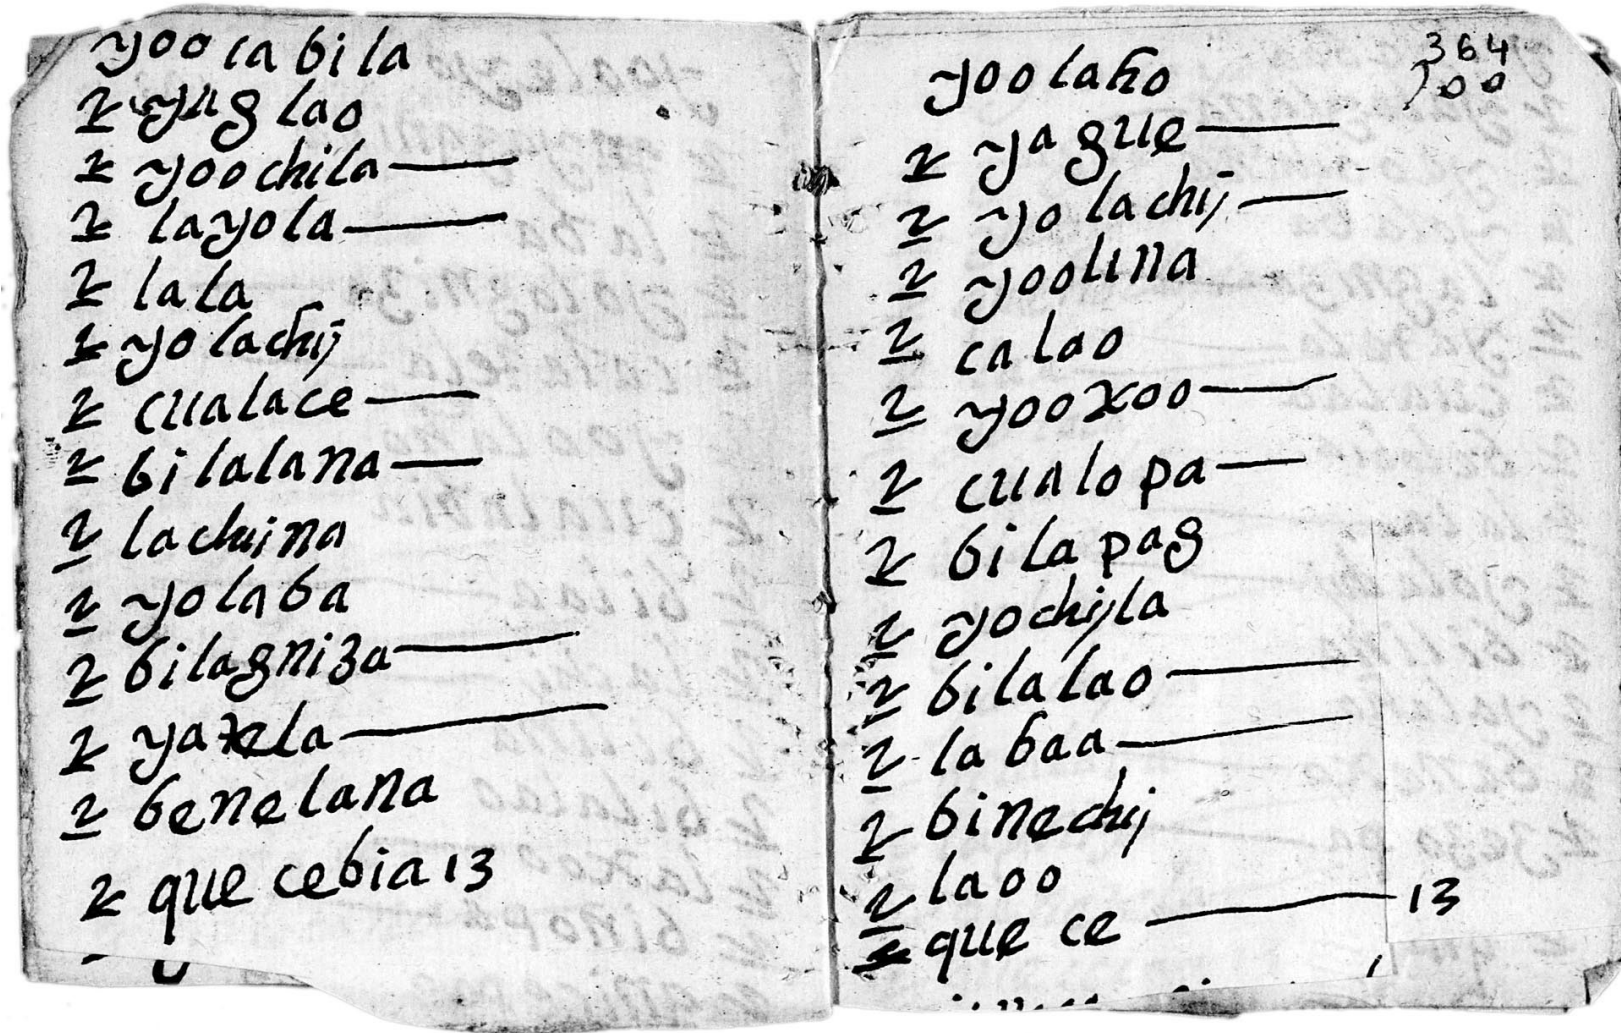 yoo cabila
2 yag lao
2 yoochila
2 layola
2 lala
2 yolachij
2 cualace
2 bilalana
2 lachina
2 yolaba
2 bilagniza
2 yaxela
2 benelana
2 que cebia 13
364
100
yoolaho
2 yague
2 yo lachij
2 yoolina
2 calao
2 yooxoo
2 cualopa
2 bilapag
2 yochijla
2 bilalao
2 labaa
2 binechij
2 laoo
2 que ce 13